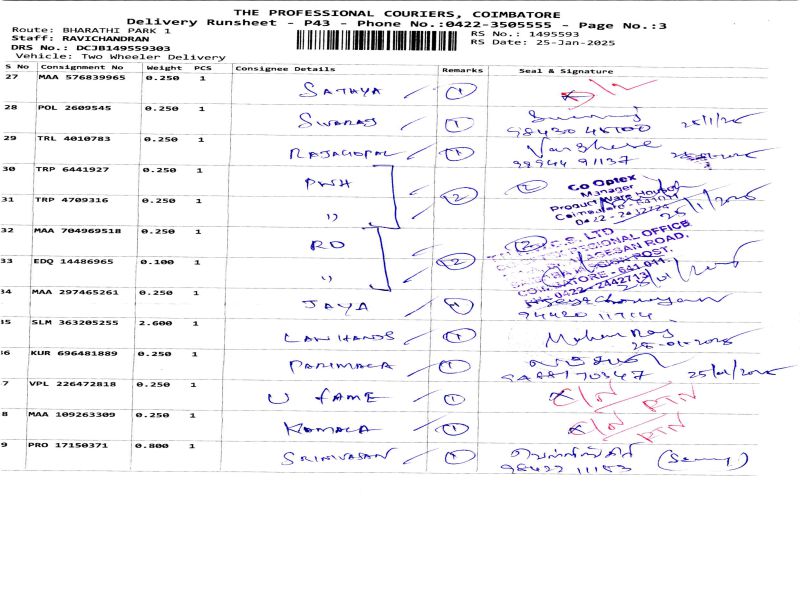 THE PROFESSIONAL COURIERS, COIMBATORE
Delivery Runsheet - P43 - Phone No.:0422-3505555 - Page No.:3
Route: BHARATHI PARK 1
Staff: RAVICHANDRAN
DRS No.: DCJB149559303
Vehicle: Two Wheeler Delivery
RS No.: 1495593
RS Date: 25-Jan-2025
S No Consignment No Weight PCS Consignee Details Remarks Seal & Signature
27 MAA 576839965 0.250 1 SATHYA 1
28 POL 2609545 0.250 1 SWARAJ 1 98420 46100 25/1/25
29 TRL 4010783 0.250 1 RAJAGOPAL 1 Varghese 98944 91137
30 TRP 6441927 0.250 1 PWH 2 2 Co Optex
Manager
31 TRP 4709316 0.250 1 " 25/1/25
32 MAA 704969518 0.250 1 RD 2 LTD
REGIONAL OFFICE
33 EDQ 14486965 0.100 1 " 2 COIMBATORE - 641 011.
0422-2442713
34 MAA 297465261 0.250 1 JAYA 1
35 SLM 363205255 2.600 1 LAWHANDS 1 Mohan Raj
25-01-2025
36 KUR 696481889 0.250 1 PARIMALA 1 25/01/2025
7 VPL 226472818 0.250 1 U FAME 1 RTN
8 MAA 109263309 0.250 1 KOMALA 1 RTN
9 PRO 17150371 0.800 1 SRINIVASAN 1
98422 11153